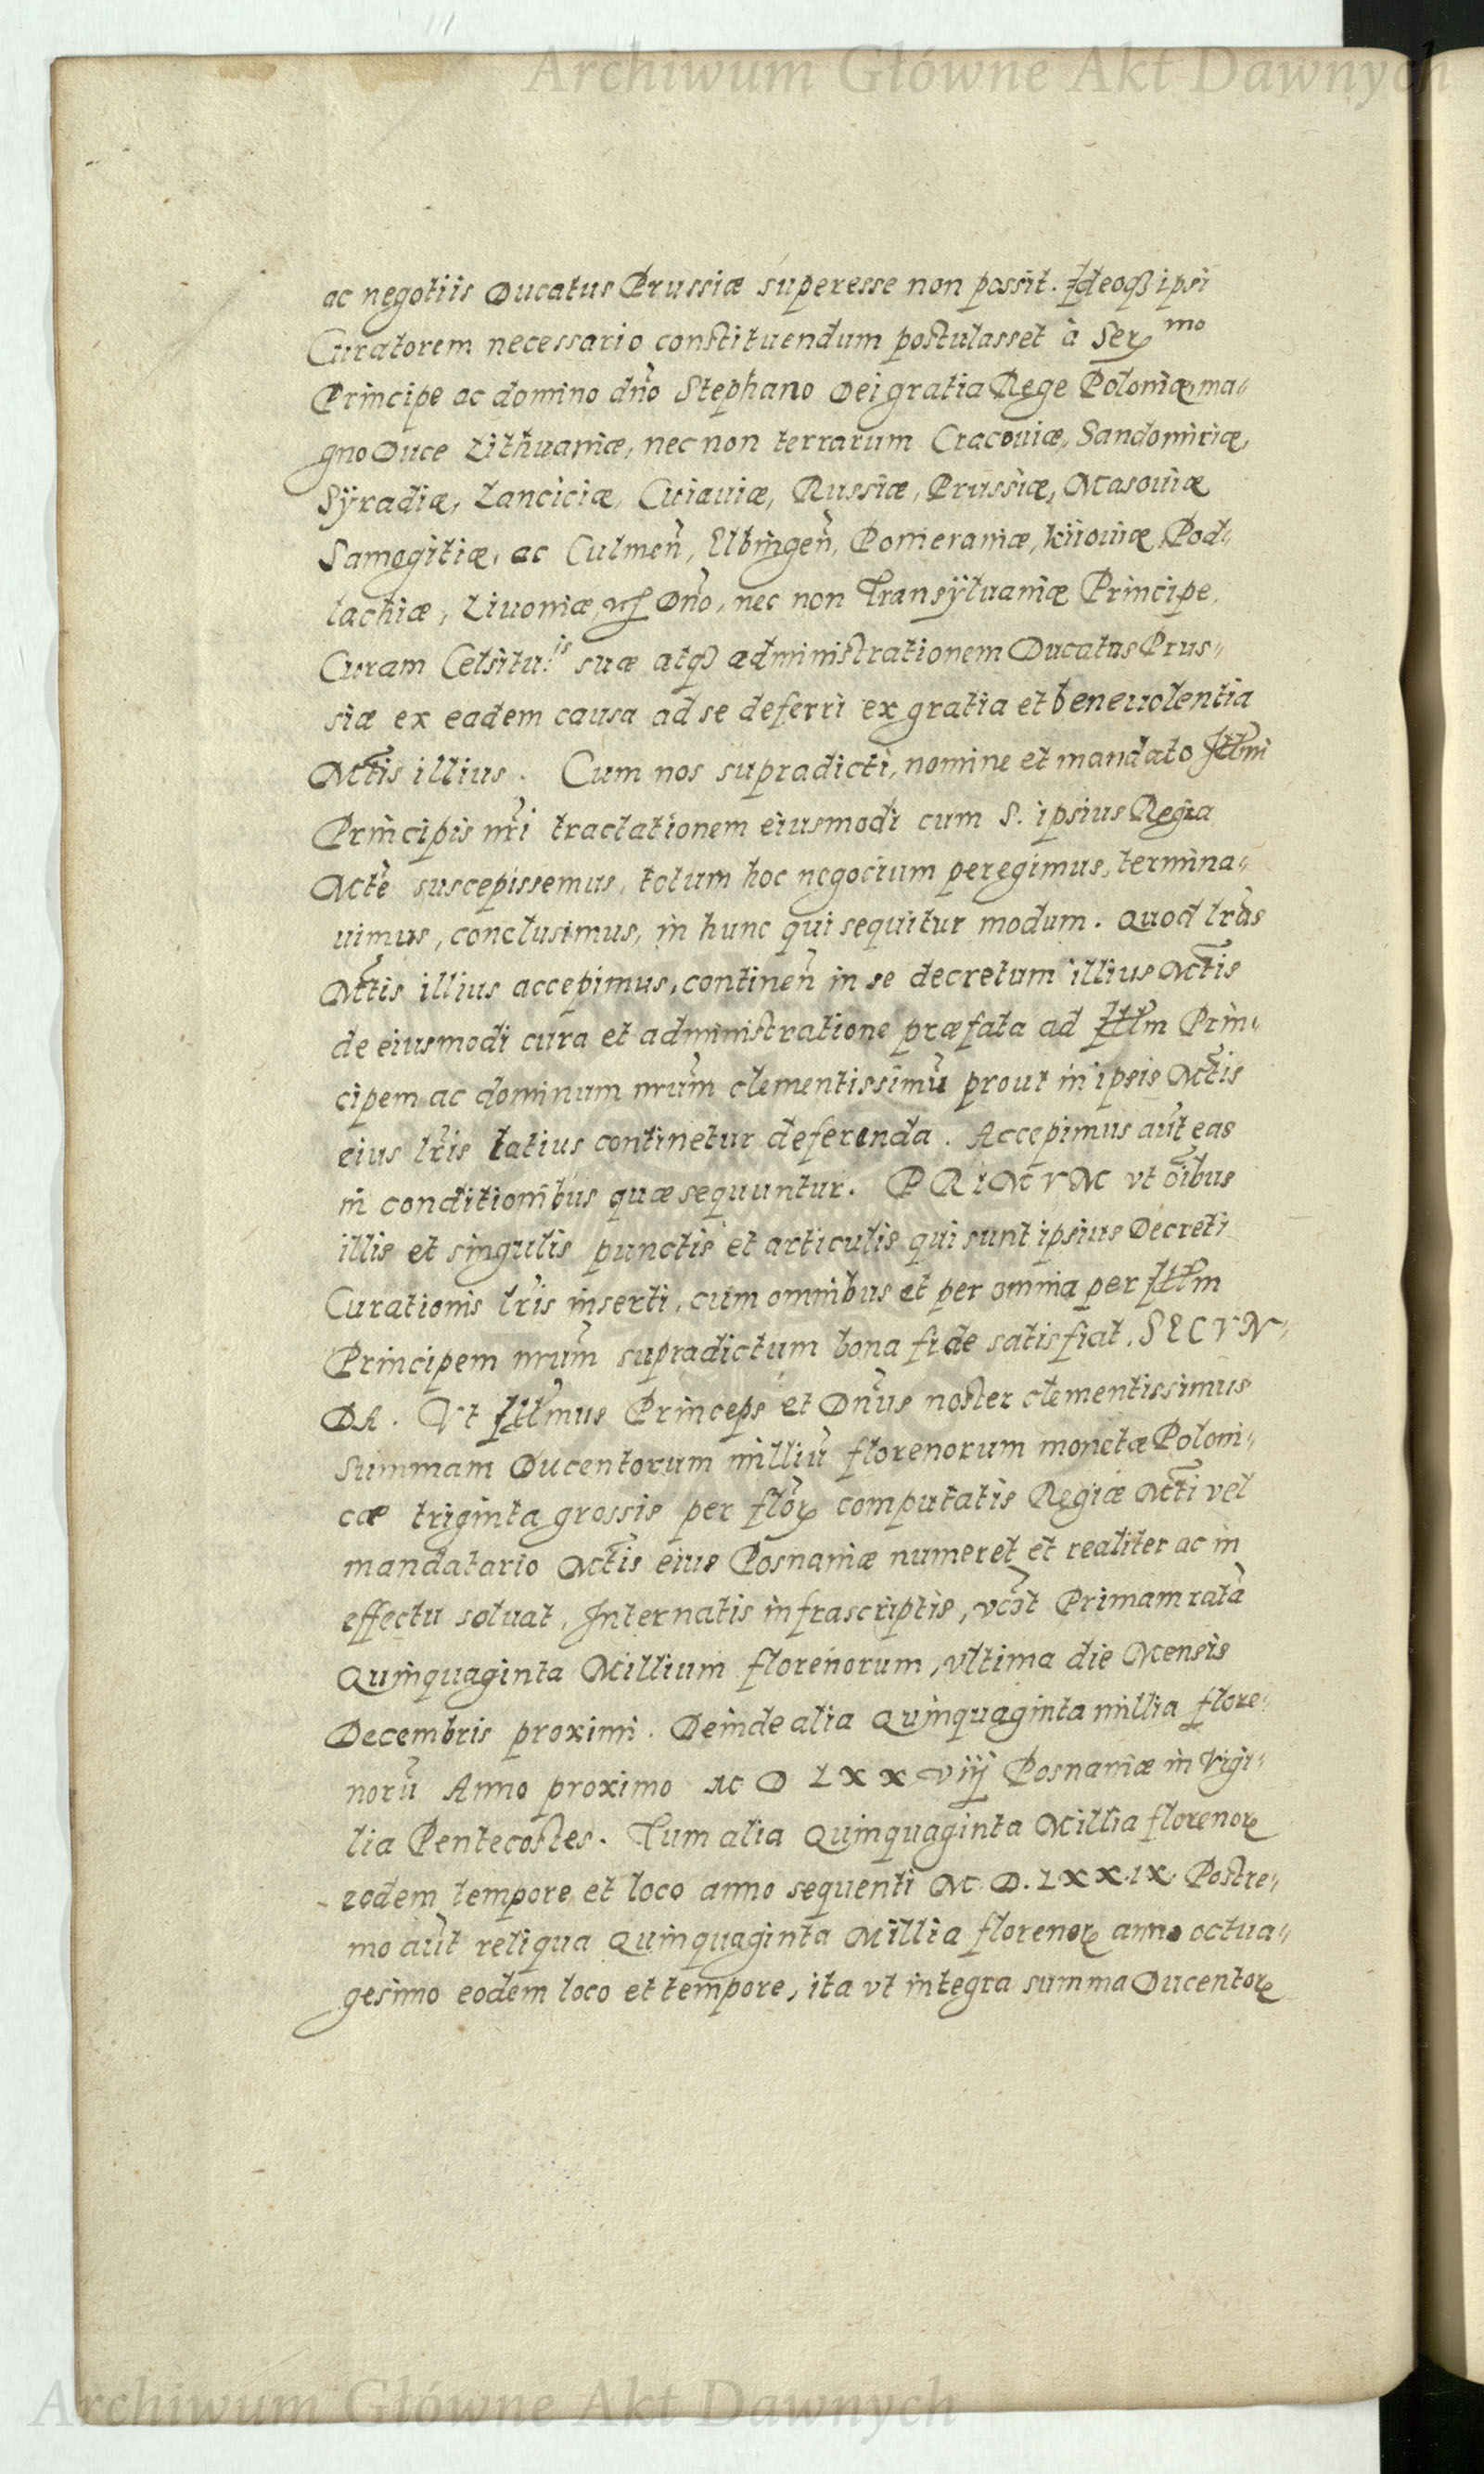 Archiwum Główne Akt Dawnych
ac negotiis Ducatus Prussiæ superesse non possit. Ideoqȝ ipsi
Curatorem necessario constituendum postulasset à Ser^mo
Principe ac domino dño Stephano Dei gratia Rege Poloniæ, ma„
gno Duce Lithuaniæ, nec non terrarum Cracouiæ, Sandomiriæ,
Sÿradiæ, Lanciciæ, Cuiauiæ, Russiæ, Prussiæ, Masouiæ
Samogitiæ, ac Culmeñ, Elbingeñ, Pomeraniæ, Kiiouiæ, Pod„
lachiæ, Liuoniæ, Dño, nec non Transÿluaniæ Principe.
Curam Celsitu:^is suæ atqȝ administrationem Ducatus Prus„
siæ ex eadem causa ad se deferri ex gratia et beneuolentia
Mt̃is illius. Cum nos supradicti, nomine et mandato Illm̃i
Principis nr̃i tractationem eiusmodi cum S. ipsius Regia
Mt̃e suscepissemus, totum hoc negocium peregimus, termina„
uimus, conclusimus, in hunc qui sequitur modum. Quod lr̃as
Mt̃is illius accepimus, contineñ in se decretum illius Mt̃is
de eiusmodi cura et administratione præfata ad Illm̃ Prin„
cipem ac dominum nrũm clementissimũ prout in ipsis Mt̃is
eius lr̃is latius continetur deferenda. Accepimus aũt eas
in conditionibus quæ sequuntur. PRIMVM vt oĩbus
illis et singulis punctis et articulis qui sunt ipsius Decreti
Curationis lr̃is inserti, cum omnibus et per omnia per Illm̃
Principem nrũm supradictum bona fide satisfiat. SECVN„
DA. Vt Illm̃us Princeps et Dñus noster clementissimus
Summam Ducentorum milliũ florenorum monetæ Poloni„
cæ triginta grossis per flor̃ computatis Regiæ Mt̃i vel
mandatario Mt̃is eius Posnaniæ numeret et realiter ac in
effectu soluat, Internatis infrascriptis, vc̃it Primam ratã
Quinquaginta Millium florenorum, vltima die Mensis
Decembris proximi. Deinde alia Quinquaginta millia flore„
norũ Anno proximo M D LXX viij Posnaniæ in Vigi„
lia Pentecostes. Tum alia Quinquaginta Millia florenoꝝ
eodem tempore et loco anno sequenti M. D. LXX.IX. Postre„
mo aũt reliqua Quinquaginta Millia florenoꝝ anno octua„
gesimo eodem loco et tempore, ita vt integra summa Ducentoꝝ
Archiwum Główne Akt Dawnych